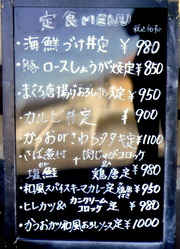 定食MENU
税込価格
・海鮮づけ丼定 ¥980
・豚ロースしょうが焼定 ¥850
・まぐろ唐揚げおろしたれ定 ¥950
・カルビ丼定 ¥900
・かつおorさわらタタキ定 ¥1100
・さば煮付 + 肉じゃがコロッケ
塩鮭 鶏唐定 ¥980
・和風スパイスキーマカレー定 ¥950
・ヒレカツ&カニクリームコロッケ定 ¥980
・かつおカツ和風おろしソース定 ¥1000